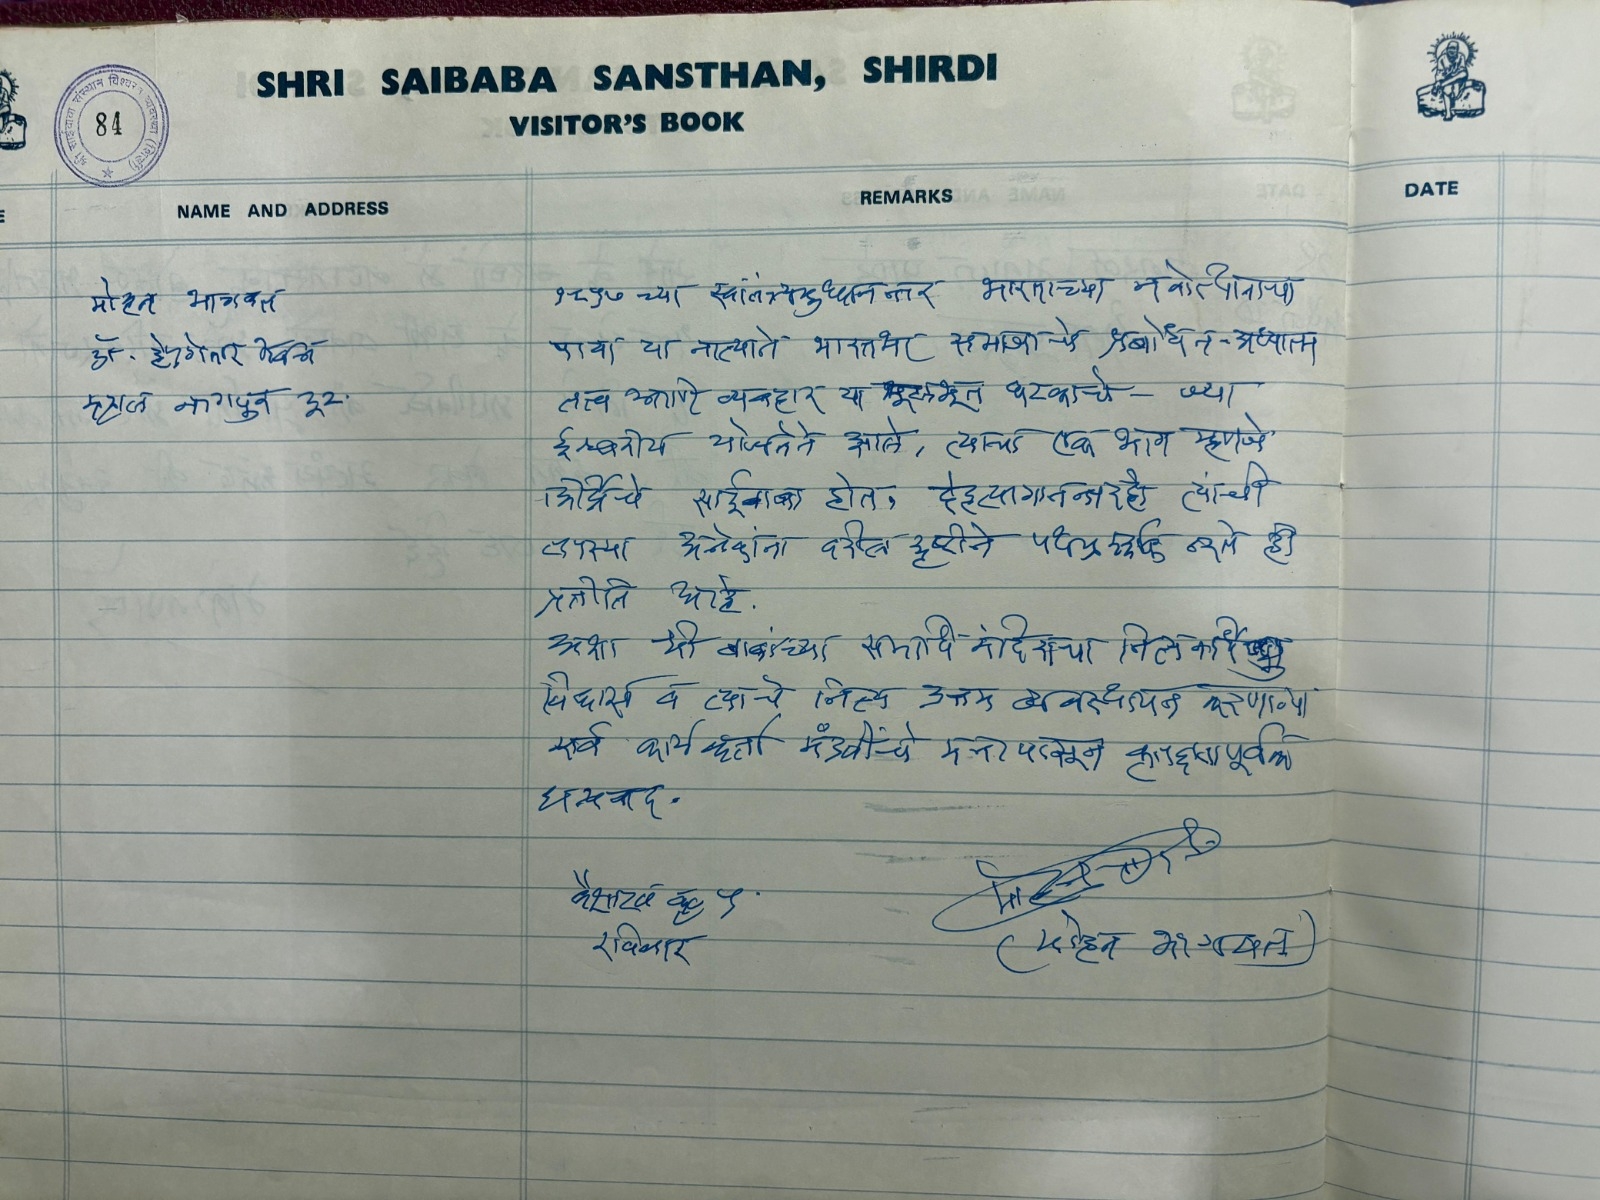 SHRI SAIBABA SANSTHAN, SHIRDI
VISITOR'S BOOK
84
NAME AND ADDRESS
REMARKS
DATE
मोहन भागवत
डॉ. हेडगेवार भवन
महाल नागपुर ३२.
१८५७ च्या स्वातंत्र्ययुद्धानन्तर भारताच्या नवोत्थानाचा
पाया या नात्याने भारतभर समाजाचे प्रबोधन-अध्यात्म
तत्व आणि व्यवहार या मूलभूत घटकांचे - ज्या
ईश्वरीय योजनेने झाले, त्याचा एक भाग म्हणजे
शिर्डीचे साईबाबा होत, देहत्यागानन्तरही त्यांची
तपस्या अनेकांना वरील दृष्टीने करते ही
प्रतीति आहे.
अशा श्री बाबांच्या समाधि मंदिराचा
विस्तार व त्याचे नित्य उत्तम व्यवस्थापन करणाऱ्या
सर्व कार्यकर्ता मंडळींचे मनापासून कृतज्ञतापूर्वक
धन्यवाद.
वैशाख कृ ५.
रविवार
(मोहन भागवत)